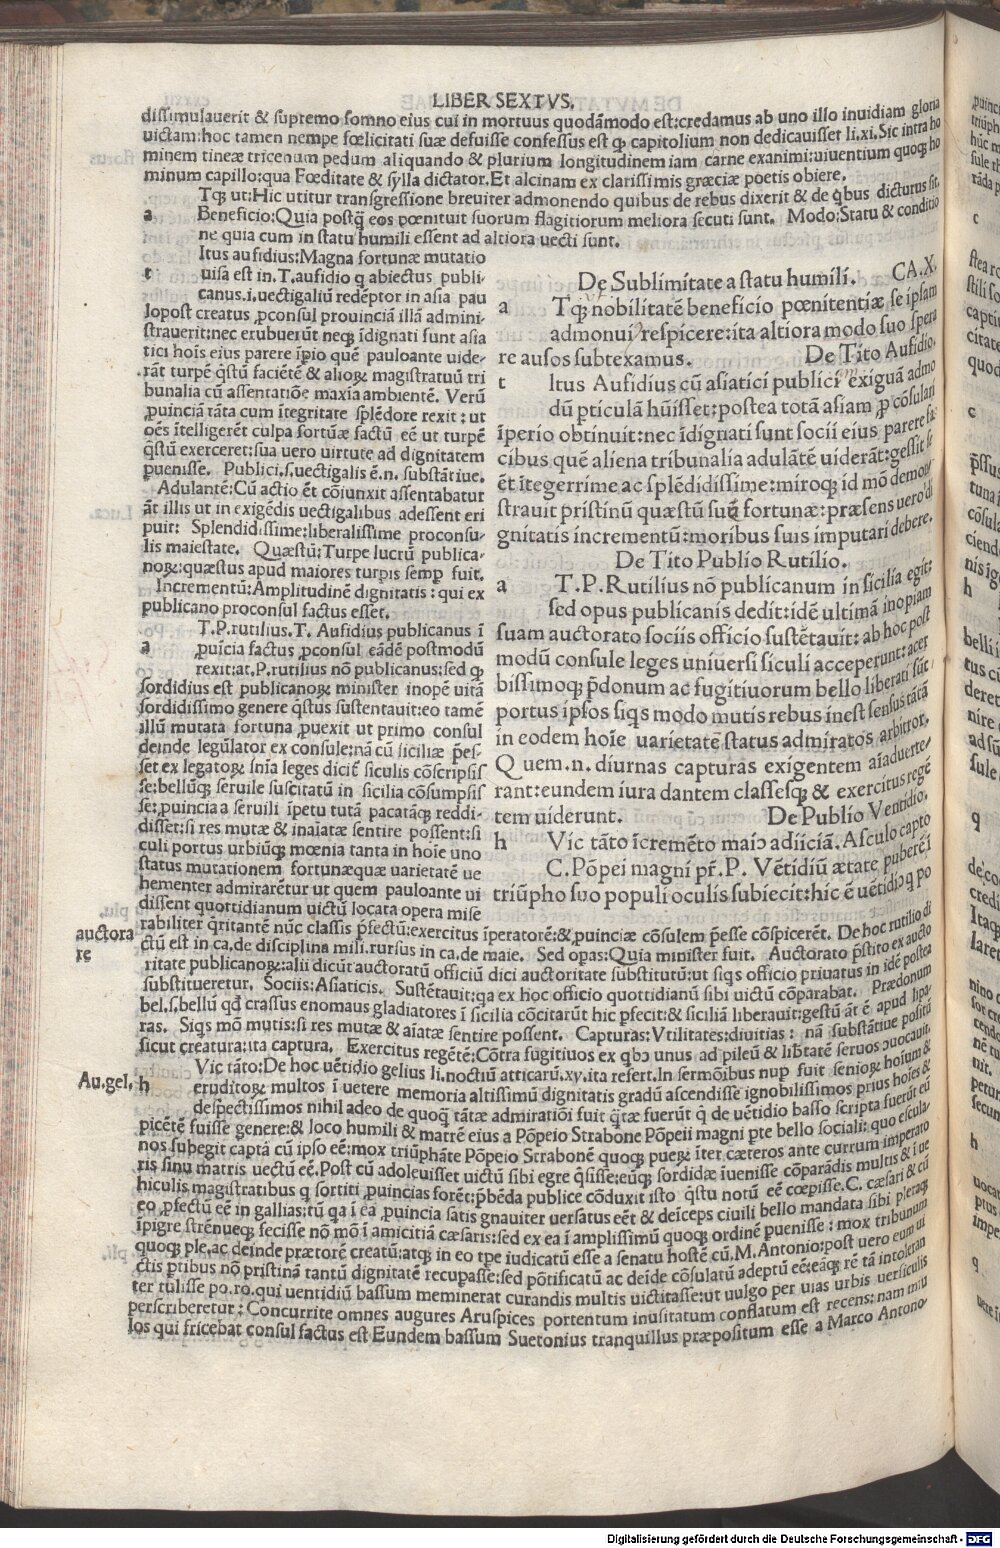 LIBER SEXTVS.
dissimulauerit & supremo somno eius cui in mortuus quodãmodo est:credamus ab uno illo inuidiam gloria
uictam:hoc tamen nempe fœlicitati suæ defuisse confessus est ꝙ capitolium non dedicauisset li.xi.Sic intra ho
minem tineæ tricenum pedum aliquando & plurium longitudinem iam carne exanimi:uiuentium quoqꝫ ho
minum capillo:qua Fœditate & sylla dictator.Et alcinam ex clarissimis græciæ poetis obiere.
Tqꝫ ut:Hic utitur transgressione breuiter admonendo quibus de rebus dixerit & de q̇bus dicturus sit.
a Beneficio:Quia postq̃ eos pœnituit suorum flagitiorum meliora secuti sunt. Modo:Statu & conditio
ne quia cum in statu humili essent ad altiora uecti sunt.
Itus aufidius:Magna fortunæ mutatio
t uisa est in.T.aufidio q abiectus publi-
canus.i.uectigaliũ redẽptor in asia pau
lopost creatus ꝓconsul prouinciã illã admini-
strauerit:nec erubuerũt neqꝫ ĩdignati sunt asia
tici hoĩs eius parere ĩpio quẽ pauloante uide-
rãt turpẽ q̃stũ faciẽtẽ & alioꝝ magistratuũ tri
bunalia cũ assentatiõe maxia ambientẽ. Verũ
ꝓuinciã tãta cum ĩtegritate splẽdore rexit: ut
oẽs ĩtelligerẽt culpa fortũæ factũ eẽ ut turpẽ
q̃stũ exerceret:sua uero uirtute ad dignitatem
puenisse. Publici.s.uectigalis ẽ.n. substãtiue.
Adulantẽ:Cũ actio ẽt cõiunxit assentabatur
ãt illis ut in exigẽdis uectigalibus adessent eri
puit: Splendidissime:liberalissime proconsu-
lis maiestate. Quæstũ:Turpe lucrũ publica-
noꝝ:quæstus apud maiores turpis semp fuit.
Incrementũ:Amplitudinẽ dignitatis: qui ex
publicano proconsul factus esset.
T.P.rutilius.T. Aufidius publicanus ĩ
a ꝓuicia factus ꝓconsul eãdẽ postmodũ
rexit:at.P.rutilius nõ publicanus:sed ꝙ
sordidius est publicanoꝝ minister inopẽ uitã
sordidissimo genere q̃stus sustentauit:eo tamẽ
illũ mutata fortuna ꝓuexit ut primo consul
deinde legũlator ex consule:nã cũ siciliæ p̃es-
set ex legatoꝝ sñia leges dicit̃ siculis cõscripsis
se:bellũqꝫ seruile suscitatũ in sicilia cõsumpsis
se:ꝓuincia a seruili ĩpetu tutã pacatãqꝫ reddi-
disset:si res mutæ & inaĩatæ sentire possent:si
culi portus urbiũqꝫ mœnia tanta in hoĩe uno
status mutationem fortunæquæ uarietatẽ ue
hementer admirarẽtur ut quem pauloante ui
dissent quottidianum uictũ locata opera mise
rabiliter q̃ritantẽ nũc classis p̃fectũ:exercitus ĩperatorẽ:& ꝓuinciæ cõsulem p̃esse cõspicerẽt. De hoc rutilio di
ctũ est in ca.de disciplina mili.rursus in ca.de maie. Sed opas:Quia minister fuit. Auctorato p̃stito ex aucto
ritate publicanoꝝ:alii dicũt auctoratũ officiũ dici auctoritate substitutũ:ut siqs officio priuatus in idẽ postea
substitueretur. Sociis:Asiaticis. Sustẽtauit:qa ex hoc officio quottidianũ sibi uictũ cõparabat. Prædonum
bel.s.bellũ qḋ crassus enomaus gladiatores ĩ sicilia cõcitarũt hic ꝑfecit:& siciliã liberauit:gestũ ãt ẽ apud lipa-
ras. Siqs mõ mutis:si res mutæ & aĩatæ sentire possent. Capturas:Vtilitates:diuitias: nã substãtiue positũ
sicut creatura:ita captura. Exercitus regẽtẽ:Cõtra fugitiuos ex qbɔ unus ad pileũ & lib̃tatẽ seruos ꝓuocauit.
Vic tãto:De hoc uẽtidio gelius li.noctiũ atticarũ.xy.ita refert.In sermõibus nup fuit senioꝝ hoĩum &
h eruditoꝝ multos ĩ uetere memoria altissimũ dignitatis gradũ ascendisse ignobilissimos prius hoĩes &
despectissimos nihil adeo de quoq̃ tãtæ admiratiõi fuit q̃tæ fuerũt q̇ de uẽtidio basso scripta fuerũt eũ
picẽtẽ fuisse genere:& loco humili & matrẽ eius a Põpeio Strabone Põpeii magni p̃te bello sociali: quo escula-
nos subegit captã cũ ipso eẽ:mox triũphãte Põpeio Strabonẽ quoqꝫ pueꝝ ĩter cæteros ante currum imperato
ris sinu matris uectũ eẽ.Post cũ adoleuisset uictũ sibi egre q̃sisse:eũqꝫ sordidæ ĩuenisse cõparãdis multis & ĩ ue
hiculis magistratibus q sortiti ꝓuincias forẽt:p̃bẽda publice cõduxit isto q̃stu notũ eẽ cœpisse.C. cæsari & cũ
eo ꝓfectũ eẽ in gallias:tũ qa ĩ ea ꝓuincia satis gnauiter uersatus eẽt & deĩceps ciuili bello mandata sibi pleraqꝫ
ĩpigre strẽnueqꝫ fecisse nõ mõ ĩ amicitiã cæsaris:sed ex ea ĩ amplissimũ quoqꝫ ordinẽ puenisse: mox tribunum
quoqꝫ ple.ac deinde prætorẽ creatũ:atqꝫ in eo tpe iudicatũ esse a senatu hostẽ cũ.M.Antonio:post uero eum ui
ctis ptibus nõ pristinã tantũ dignitatẽ recupasse:sed põtificatũ ac deĩde cõsulatũ adeptũ eẽ:eãqꝫ rẽ tã intoleran
ter tulisse po.ro.qui uentidiũ bassum meminerat curandis multis uictitasse:ut uulgo per uias urbis uersiculis
perscriberetur: Concurrite omnes augures Aruspices portentum inusitatum conflatum est recens: nam mu
los qui fricebat consul factus est Eundem bassum Suetonius tranquillus præpositum esse a Marco Antono-
auctora
re
Au.gel.
De Sublimitate a statu humili. CA.X.
a Tqꝫ nobilitatẽ beneficio pœnitentiæ se ipsam
admonui respicere:ita altiora modo suo spera
re ausos subtexamus. De Tito Aufidio.
t Itus Aufidius cũ asiatici publici exiguã admo
dũ pticulã hũisset:postea totã asiam ꝓcõsulari
ĩperio obtinuit:nec ĩdignati sunt socii eius parere fa-
cibus quẽ aliena tribunalia adulãtẽ uiderãt:gessit se
ẽt ĩtegerrime ac splẽdidissime:miroqꝫ id mõ demon-
strauit pristinũ quæstũ suũ fortunæ: præsens uero di
gnitatis incrementũ:moribus suis imputari debere.
De Tito Publio Rutilio.
a T.P.Rutilius nõ publicanum in sicilia egit:
sed opus publicanis dedit:idẽ ultimã inopiam
suam auctorato sociis officio sustẽtauit: ab hoc post
modũ consule leges uniuersi siculi acceperunt: acer
bissimoqꝫ p̃donum ac fugitiuorum bello liberati sũt
portus ipsos siqs modo mutis rebus inest sensus tãtã
in eodem hoĩe uarietatẽ status admiratos arbitror.
Quem.n. diurnas capturas exigentem aĩaduerte-
rant:eundem iura dantem classesqꝫ & exercitus regẽ
tem uiderunt. De Publio Ventidio.
h Vic tãto ĩcremẽto maiɔ adiiciã. Asculo capto
C.Põpei magni pr̃.P. Vẽtidiũ ætate puberẽ ĩ
triũpho suo populi oculis subiecit:hic ẽ uẽtidiɔ q po
Digitalisierung gefördert durch die Deutsche Forschungsgemeinschaft - DFG